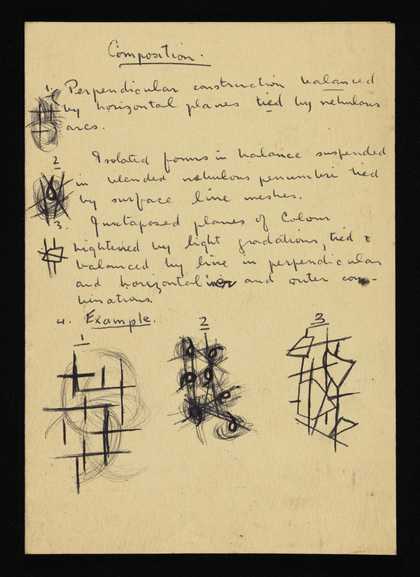 Composition.
1. Perpendicular construction balanced
by horizontal planes tied by nebulous
arcs.
2 Isolated forms in balance suspended
in blended nebulous penumbri tied
by surface line meshes.
3. Juxtaposed planes of Colour
hightened by light gradations, tied &
balanced by line in perpendicular
and horizontal inner and outer com
binations.
4. Example.
1 2 3